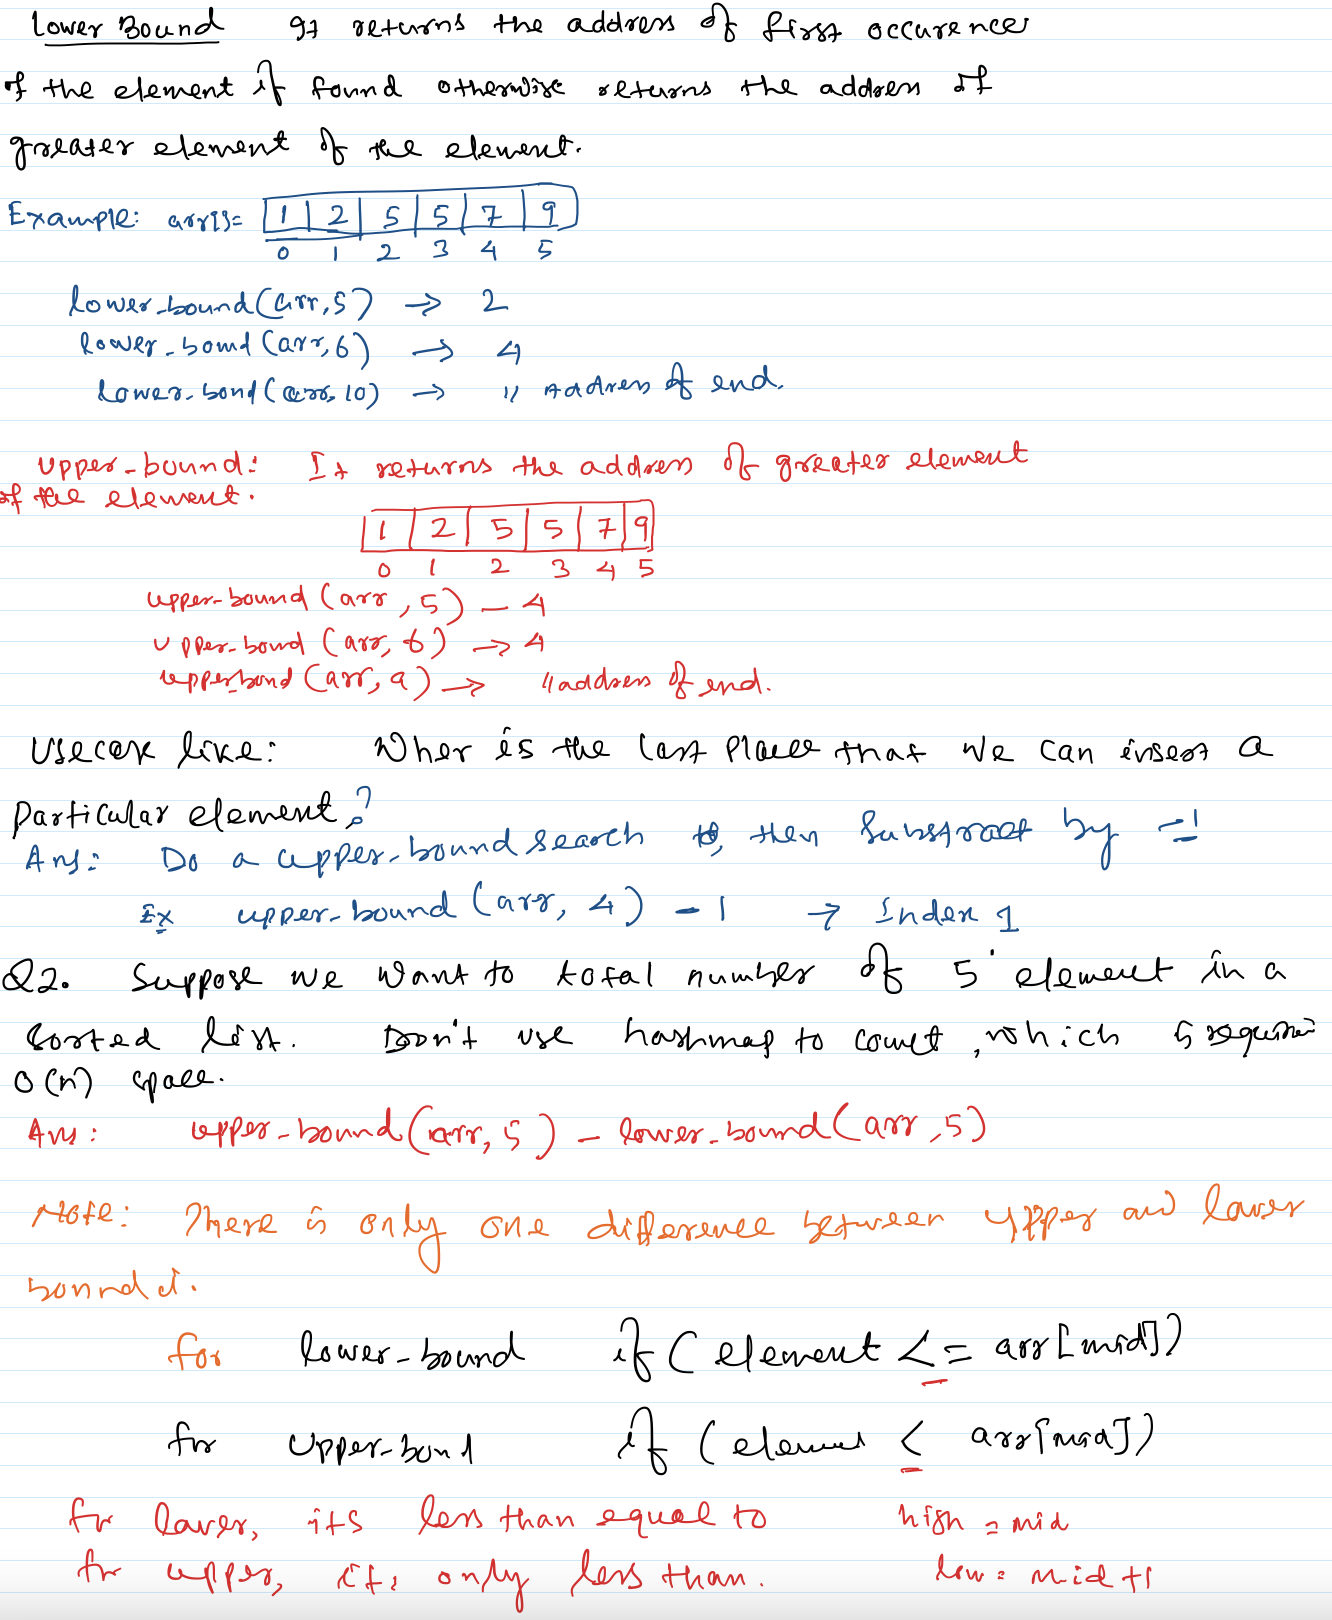 Lower Bound It returns the address of first occurence
of the element if found otherwise returns the address of
greater element of the element.
Example: arr[]= 1 2 5 5 7 9
0 1 2 3 4 5
lower_bound(arr,5) → 2
lower_bound(arr,6) → 4
lower_bond(arr,10) → // Address of end.
upper_bound: It returns the address of greater element
of the element.
1 2 5 5 7 9
0 1 2 3 4 5
upper-bound(arr,5) - 4
upper-bound(arr,6) → 4
upperbond(arr,9) → //address of end.
Usecase like: Wher is the last place that we can insert a
particular element?
Ans: Do a upper-bound search then Substract by -1
Ex upper-bound(arr, 4) - 1 → Index 1
Q2. Suppose we want to total number of 5 element in a
sorted list. Don't use hashmap to count, which is
O(n) space.
Ans: upper-bound(arr,5) - lower-bound(arr,5)
Note: There is only one difference between upper and lower
for lower-bound if(element <= arr[mid])
for Upper-bond if(element < arr[mid])
for lower, its less than equal to high = mid
for upper, its only less than. low = mid+1